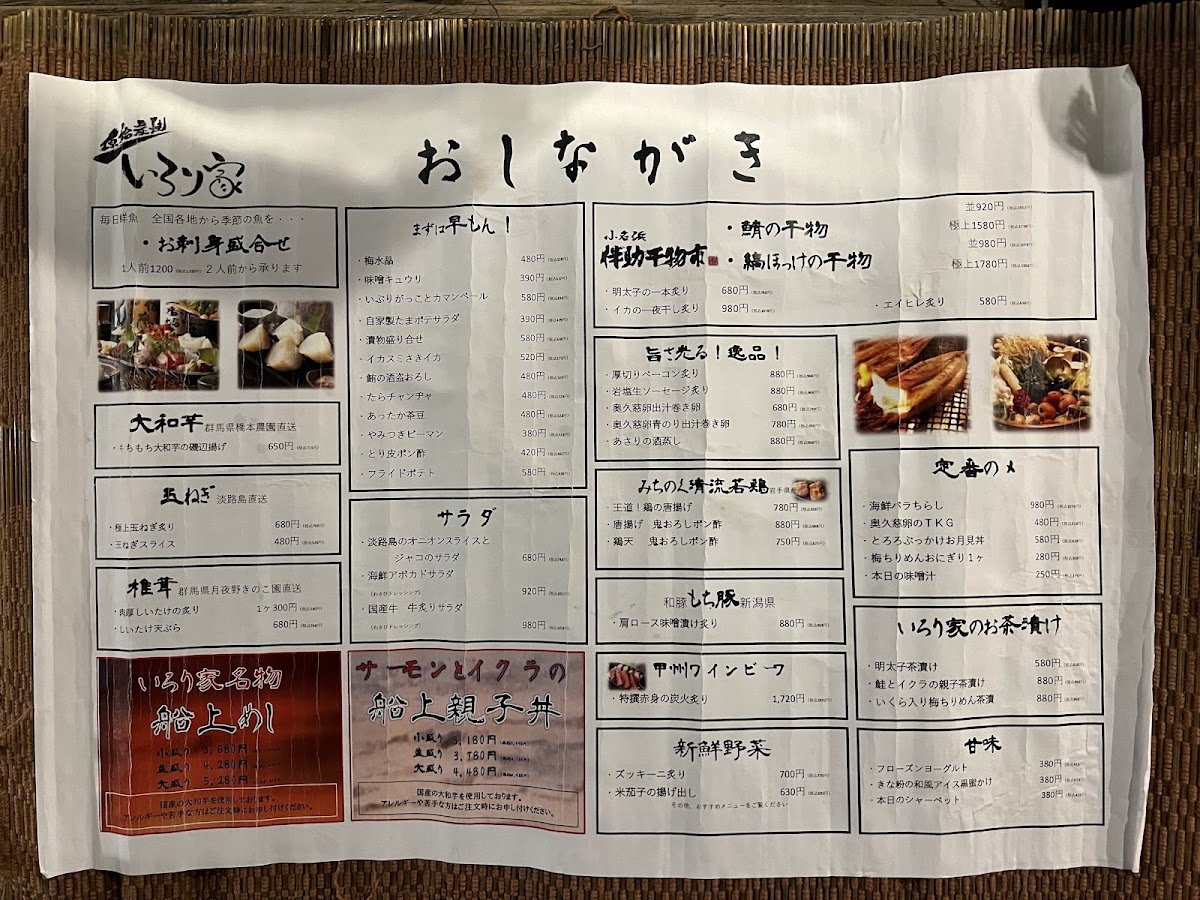 原始焼
いろり家
おしながき
毎日鮮魚 全国各地から季節の魚を・・・
・お刺身盛合せ
1人前1200 2人前から承ります
大和芋 群馬県橋本農園直送
・もちもち大和芋の磯辺揚げ 650円
玉ねぎ 淡路島直送
・極上玉ねぎ炙り 680円
・玉ねぎスライス 480円
椎茸 群馬県月夜野きのこ園直送
・肉厚しいたけの炙り 1ヶ300円
・しいたけ天ぷら 680円
いろり家名物
船上めし
小盛り 3,680円
並盛り 4,280円
大盛り 5,280円
国産の大和芋を使用しております。
アレルギーや苦手な方はご注文時にお申し付けください。
まずは早もん！
・梅水晶 480円
・味噌キュウリ 390円
・いぶりがっことカマンベール 580円
・自家製たまポテサラダ 390円
・漬物盛り合せ 580円
・イカスミさきイカ 520円
・鮪の酒盗おろし 480円
・たらチャンヂャ 480円
・あったか茶豆 480円
・やみつきピーマン 380円
・とり皮ポン酢 420円
・フライドポテト 580円
サラダ
・淡路島のオニオンスライスと
ジャコのサラダ 680円
・海鮮アボカドサラダ
(わさびドレッシング) 920円
・国産牛 牛炙りサラダ
(わさびドレッシング) 980円
サーモンとイクラの
船上親子丼
小盛り 3,180円
並盛り 3,780円
大盛り 4,480円
国産の大和芋を使用しております。
アレルギーや苦手な方はご注文時にお申し付けください。
小名浜
干物
・鯖の干物
並920円
極上1580円
・縞ほっけの干物
並980円
極上1780円
・明太子の一本炙り 680円
・イカの一夜干し炙り 980円
・エイヒレ炙り 580円
旨さ光る！逸品！
・厚切りベーコン炙り 880円
・岩塩生ソーセージ炙り 880円
・奥久慈卵出汁巻き卵 680円
・奥久慈卵青のり出汁巻き卵 780円
・あさりの酒蒸し 880円
みちのく清流若鶏 岩手県産
・王道！鶏の唐揚げ 780円
・唐揚げ 鬼おろしポン酢 880円
・鶏天 鬼おろしポン酢 750円
和豚もち豚 新潟県
・肩ロース味噌漬け炙り 880円
甲州ワインビーフ
・特撰赤身の炭火炙り 1,720円
新鮮野菜
・ズッキーニ炙り 700円
・米茄子の揚げ出し 630円
その他、おすすめメニューをご覧ください
定番の〆
・海鮮バラちらし 980円
・奥久慈卵のTKG 480円
・とろろぶっかけお月見丼 580円
・梅ちりめんおにぎり1ヶ 280円
・本日の味噌汁 250円
いろり家のお茶漬け
・明太子茶漬け 580円
・鮭とイクラの親子茶漬け 880円
・いくら入り梅ちりめん茶漬 880円
甘味
・フローズンヨーグルト 380円
・きな粉の和風アイス黒蜜かけ 380円
・本日のシャーベット 380円